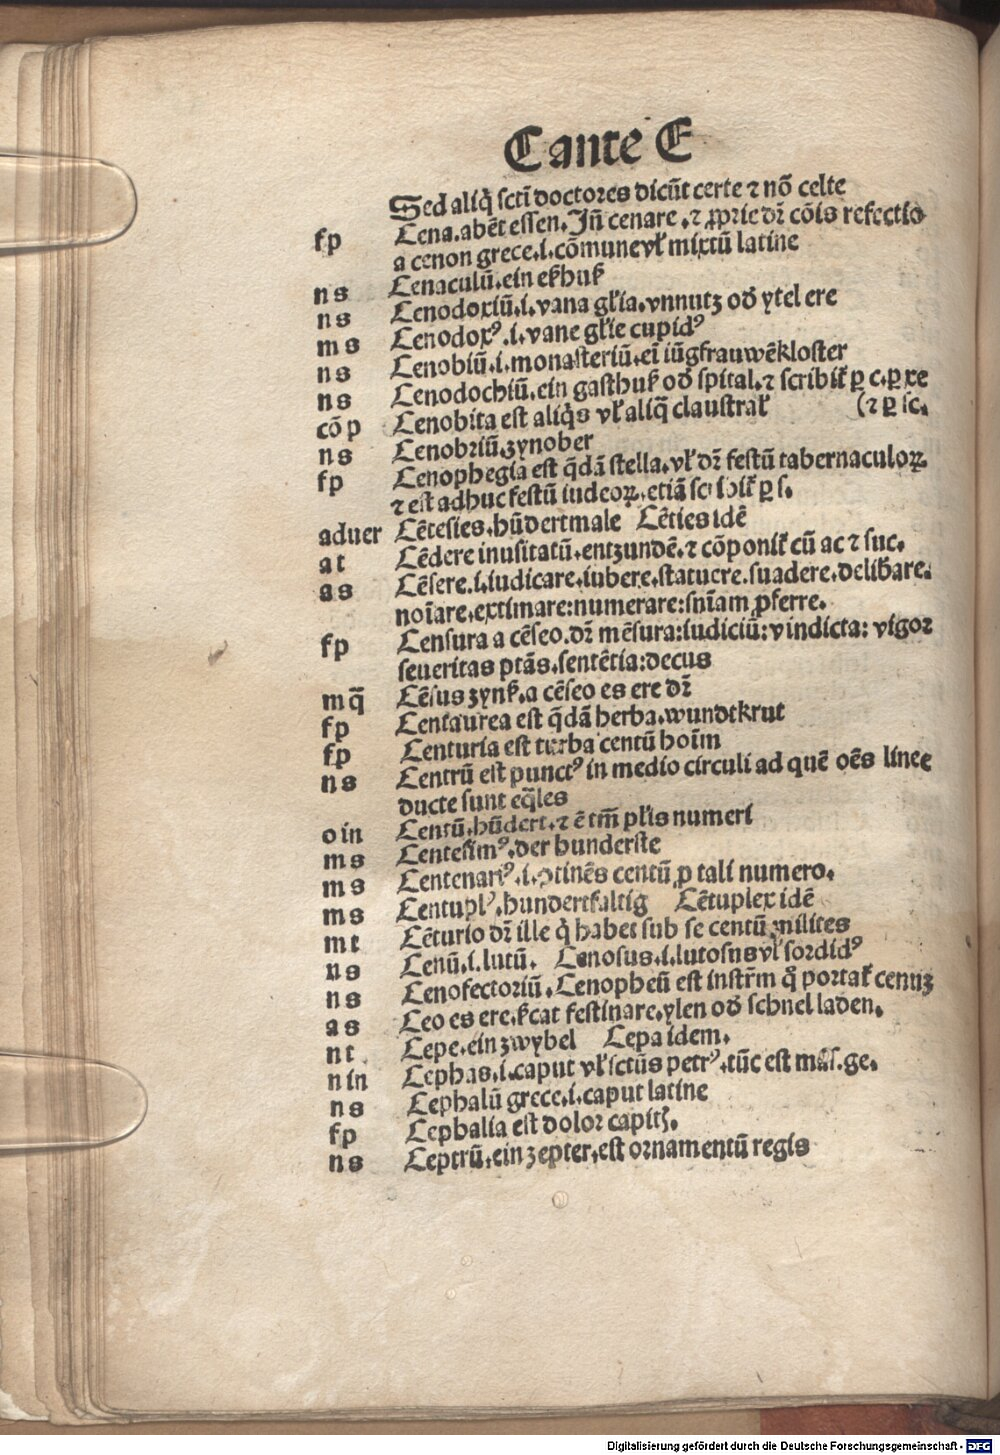 C ante E
Sed aliq̃ sctĩ doctores dicũt certe ⁊ nõ celte
fp Cena.abẽt essen.Jñ cenare.⁊ ꝓprie dr̃ cõis refectio
a cenon grece.i.cõmune vl̃ mixtũ latine
ns Cenaculũ.ein eßhuß
ns Cenodoxiũ.i.vana gl̃ia.vnnutz od̃ ytel ere
ms Cenodoxꝰ.i.vane gl̃ie cupidꝰ
ns Cenobiũ.i.monasteriũ.eĩ iũgfrauwẽkloster
ns Cenodochiũ.ein gasthuß od̃ spital.⁊ scribit̃ ꝑ c.ꝑ xe
cõ p Cenobita est aliq̃s vl̃ aliq̃ claustral̃ (⁊ ꝑ sc.
ns Cenobriũ.zynober
fp Cenophegia est q̃dã stella.vl̃ dr̃ festũ tabernaculoꝝ
⁊ est adhuc festũ iudeoꝝ.etiã scribit̃ ꝑ s.
aduer Cẽtesies.hũdertmale Cẽties idẽ
at Cẽdere inusitatũ.entzundẽ.⁊ cõponit̃ cũ ac ⁊ suc.
as Cẽsere.i.iudicare.iubere.statuere.suadere.delib̃are.
noĩare.extimare:numerare:snĩam ꝓferre.
fp Censura a cẽseo.dr̃ mẽsura:iudiciũ:vindicta:vigor
seueritas ptãs.sentẽtia:decus
mq̃ Cẽsus zynß.a cẽseo es ere dr̃
fp Centaurea est q̃dã herba.wundtkrut
fp Centuria est turba centũ hoĩm
ns Centrũ est punctꝰ in medio circuli ad quẽ oẽs linee
ducte sunt eq̃les
oin Centũ.hũdert.⁊ ẽ tm̃ pl̃is numeri
ms Centesimꝰ.der hunderste
ms Centenariꝰ.i.ↄtinẽs centũ ꝓ tali numero.
ms Centuplꝰ.hundertfaltig Cẽtuplex idẽ
mt Cẽturio dr̃ ille q̃ habet sub se centũ milites
ns Cenũ.i.lutũ. Cenosus.i.lutosus vl̃ sordidꝰ
ns Cenofectoriũ.Cenopheũ est instr̃m q̃ portat̃ cenuʒ
as Ceo es ere.ßcat festinare.ylen od̃ schnel laden.
nt Cepe.ein zwybel Cepa idem.
nin Cephas.i.caput vl̃ sctũs petrꝰ.tũc est mãs.ge.
ns Cephalũ grece.i.caput latine
fp Cephalia est dolor capitꝭ.
ns Ceptrũ.ein zepter.est ornamentũ regis
Digitalisierung gefördert durch die Deutsche Forschungsgemeinschaft - DFG